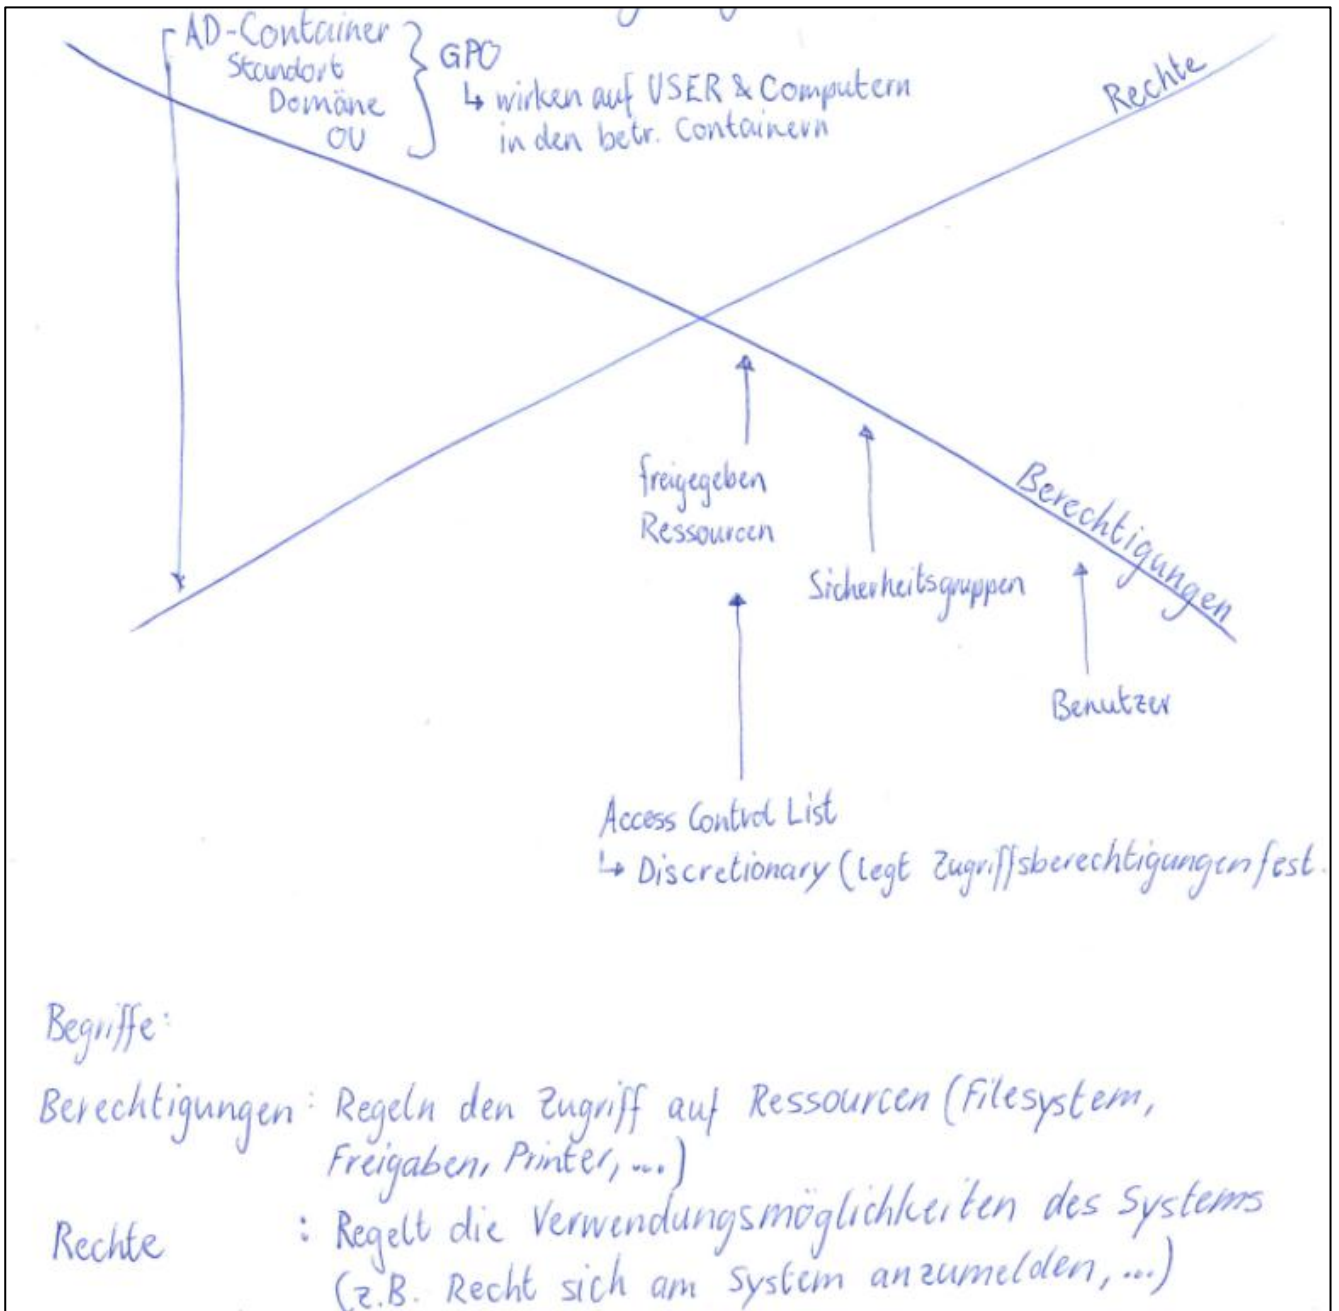 AD-Container
Standort
Domäne
OU
GPO
↳ wirken auf USER & Computern
in den betr. Containern
Rechte
freigegeben
Ressourcen
Sicherheitsgruppen
Berechtigungen
Benutzer
Access Control List
↳ Discretionary (legt Zugriffsberechtigungen fest.
Begriffe:
Berechtigungen: Regeln den Zugriff auf Ressourcen (Filesystem,
Freigaben, Printer, ...)
Rechte : Regelt die Verwendungsmöglichkeiten des Systems
(z.B. Recht sich am System anzumelden, ...)